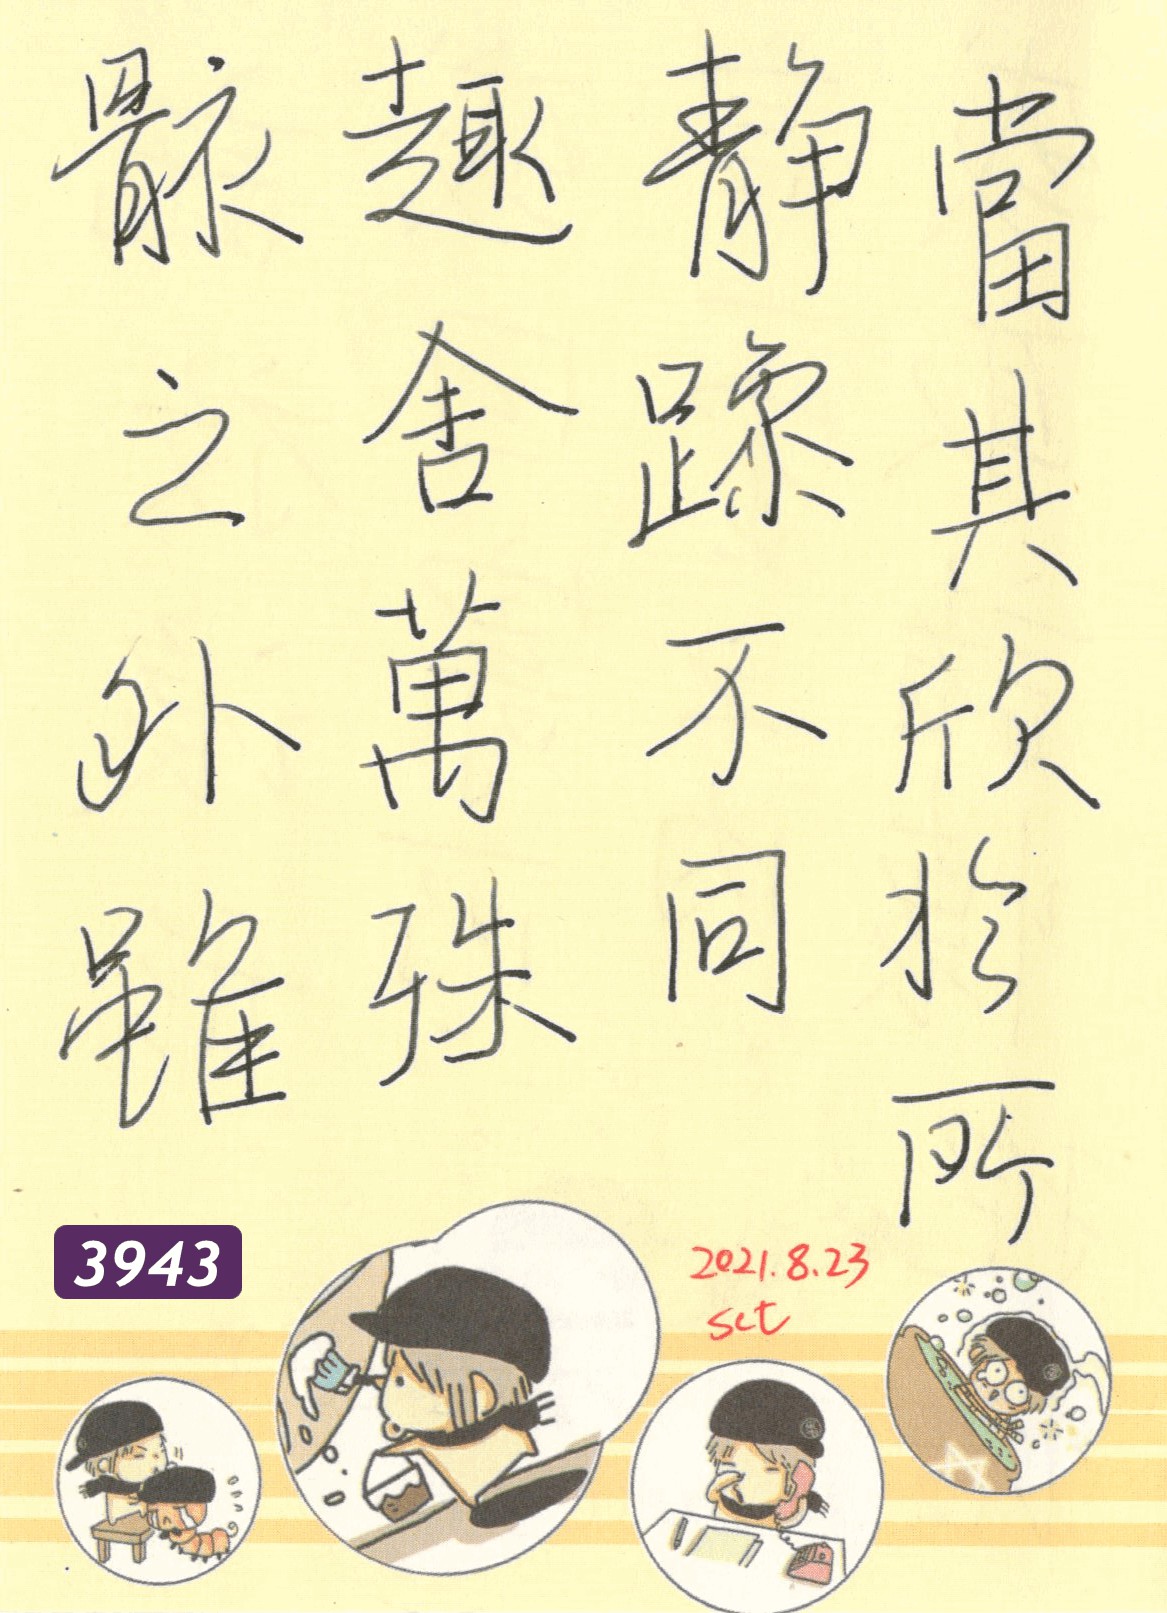 當其欣於所
靜躁不同
趣舍萬殊
骸之外雖
3943
2021.8.23
sct